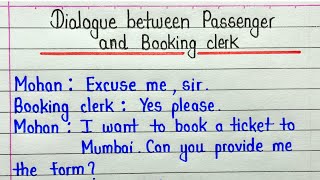 Dialogue between Passenger
and Booking clerk
Mohan : Excuse me, sir.
Booking clerk : Yes please.
Mohan : I want to book a ticket to
Mumbai. Can you provide me
the form?